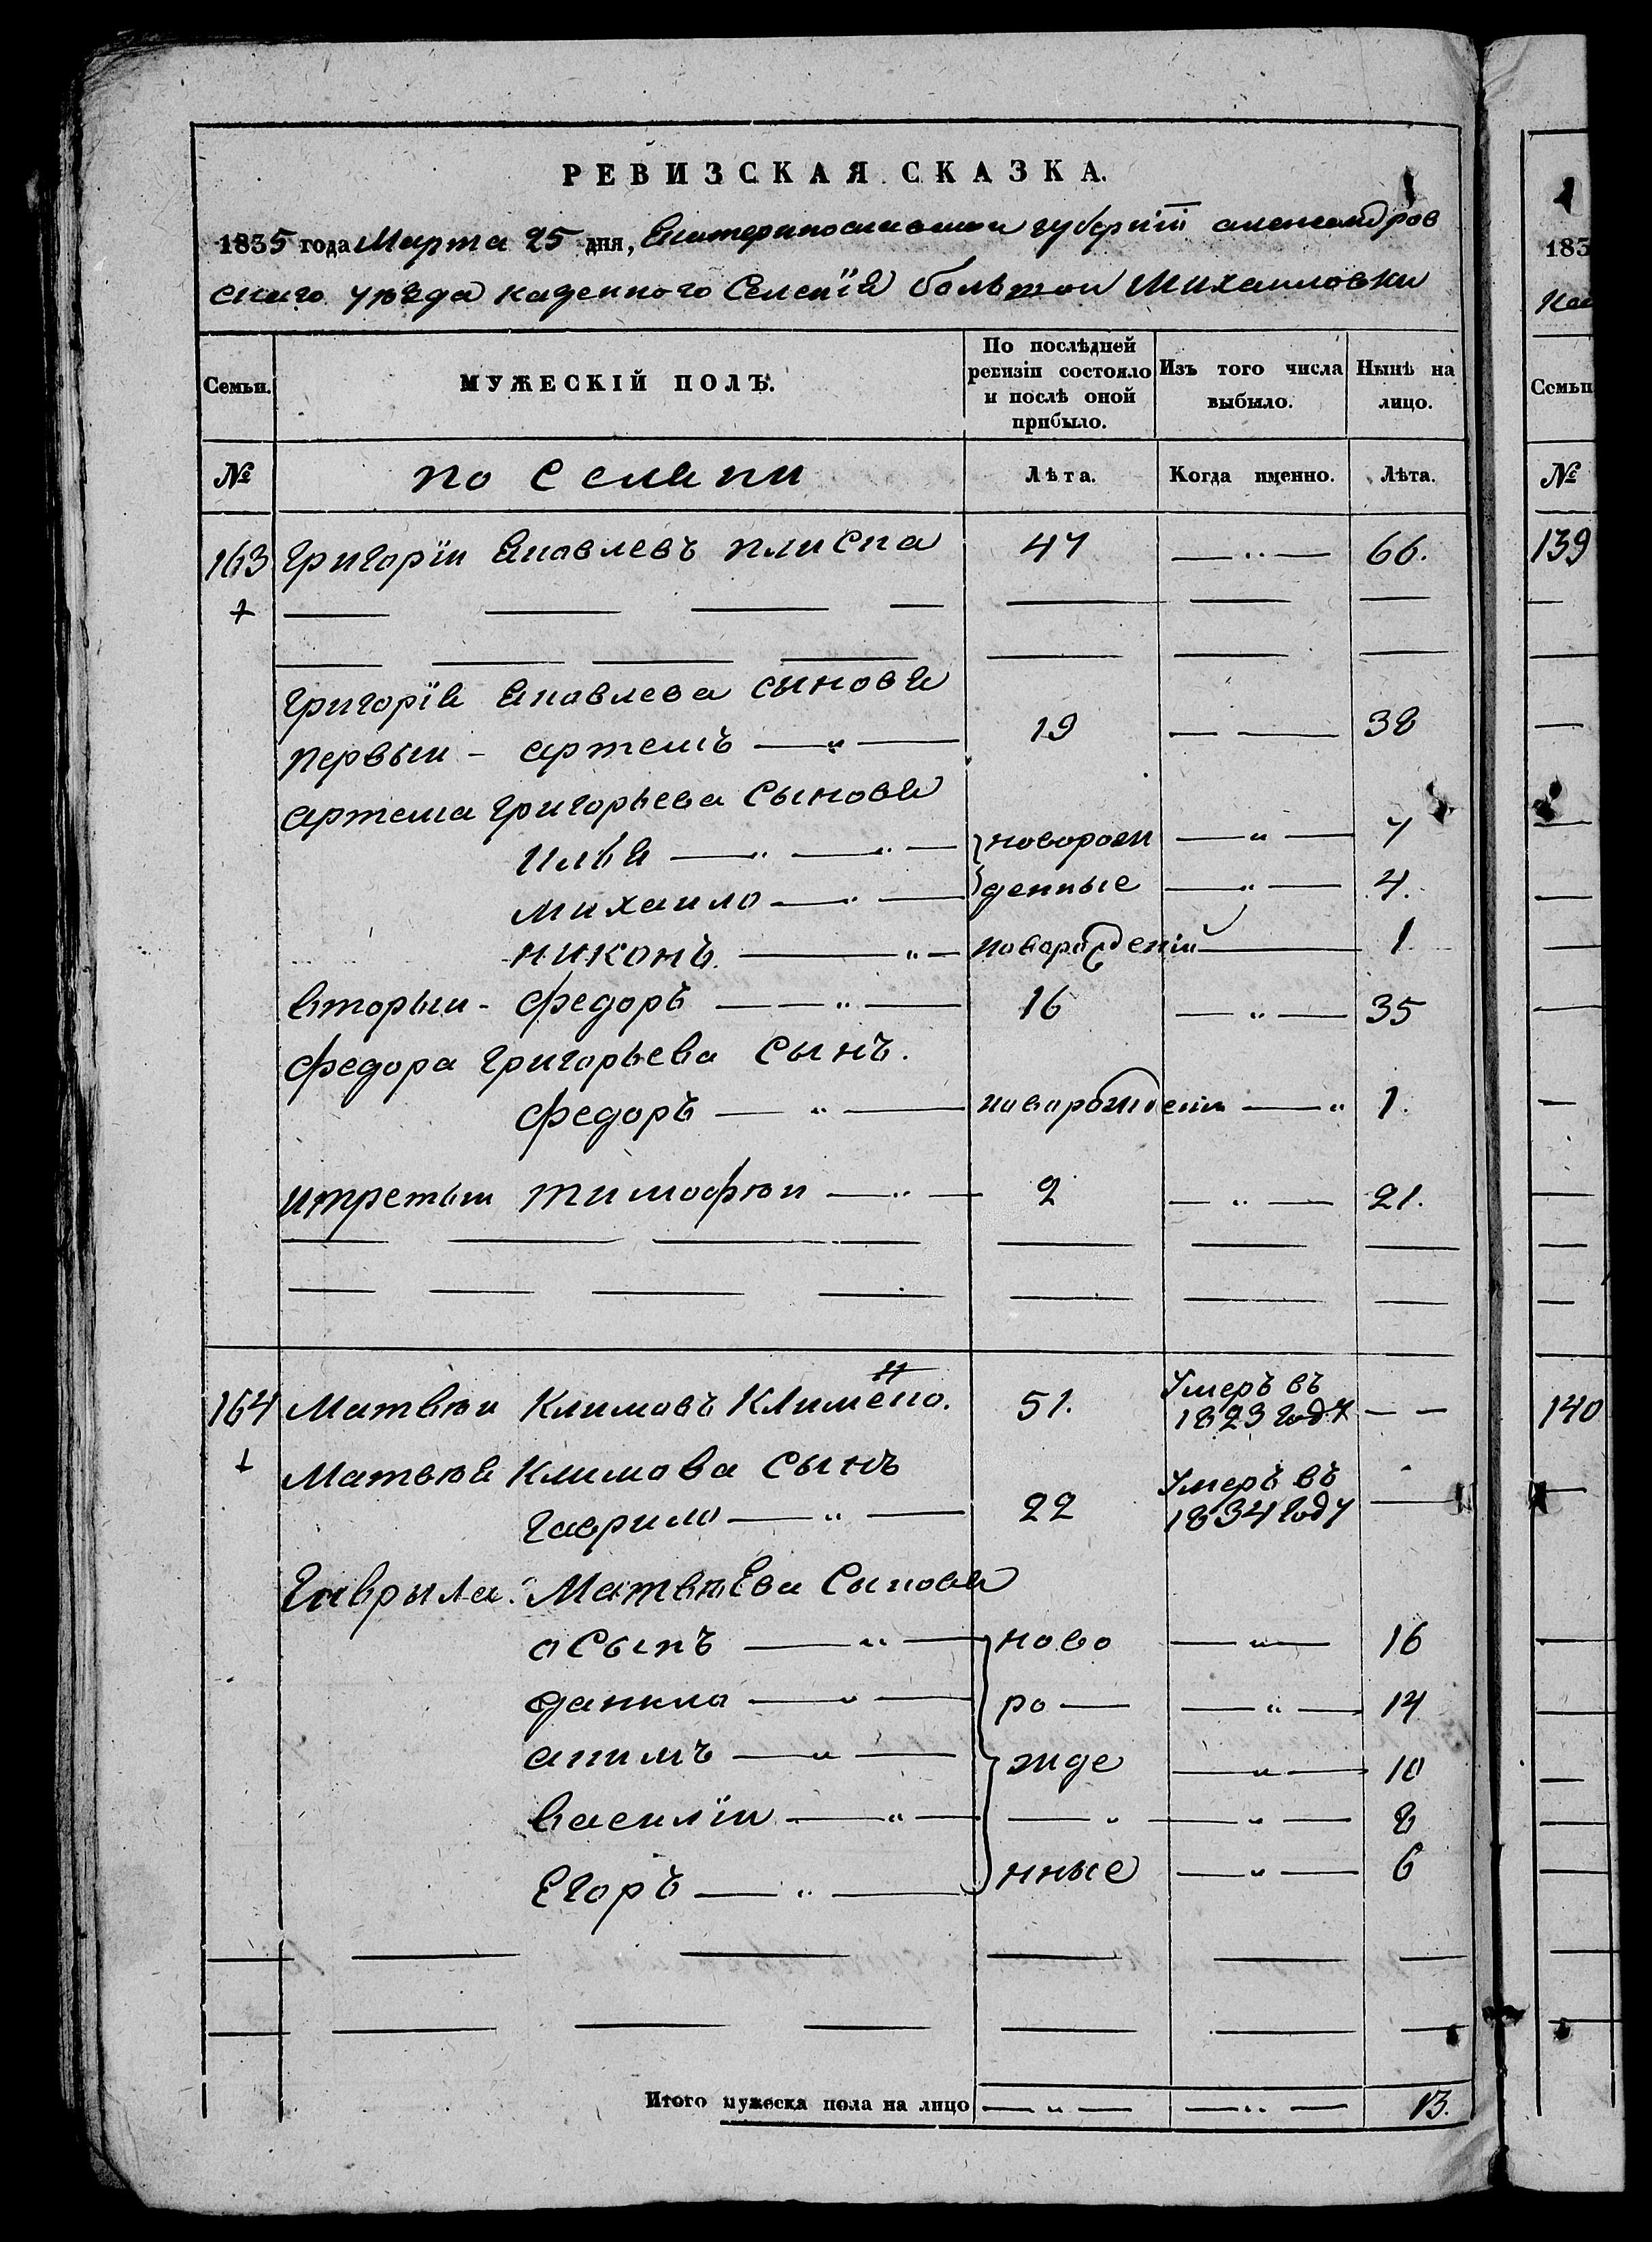 РЕВИЗСКАЯ СКАЗКА.
1835 года Марта 25 дня, Екатеринославской губернїи александров
скаго уѣзда казенного Селенїя большой Михаиловки
Семьи. МУЖЕСКІЙ ПОЛЪ. По послѣдней ревизіи состояло и послѣ оной прибыло. Изъ того числа выбыло. Нынѣ на лицо.
№ поселяни Лѣта. Когда именно. Лѣта.
163 Григорїи Яковлевъ плиска 47 66.
+
Григорїя Яковлева сыновя
первыи - артемъ 19 38
артема Григорьева Сыновя
Илья новорож 7
михаило денные 4.
никонъ новорожденїй 1
вторыи - федоръ 16 35
федора Григорьева Сынъ.
федоръ новорожденн 1.
итретыи тимофѣи 2 21.
164 Матвѣи Климовъ Клименко. 51. Умеръ въ 1823 году
+
Матвѣя Климова Сынъ
гаврило 22 Умеръ въ 1834 году
Гаврыла Матвѣева Сыновя
осыпъ ново 16
данило ро 14
акимъ жде 10
василїи 8
Егоръ нные 6
Итого мужеска пола на лицо 13.
183
Семьи
№
139
140